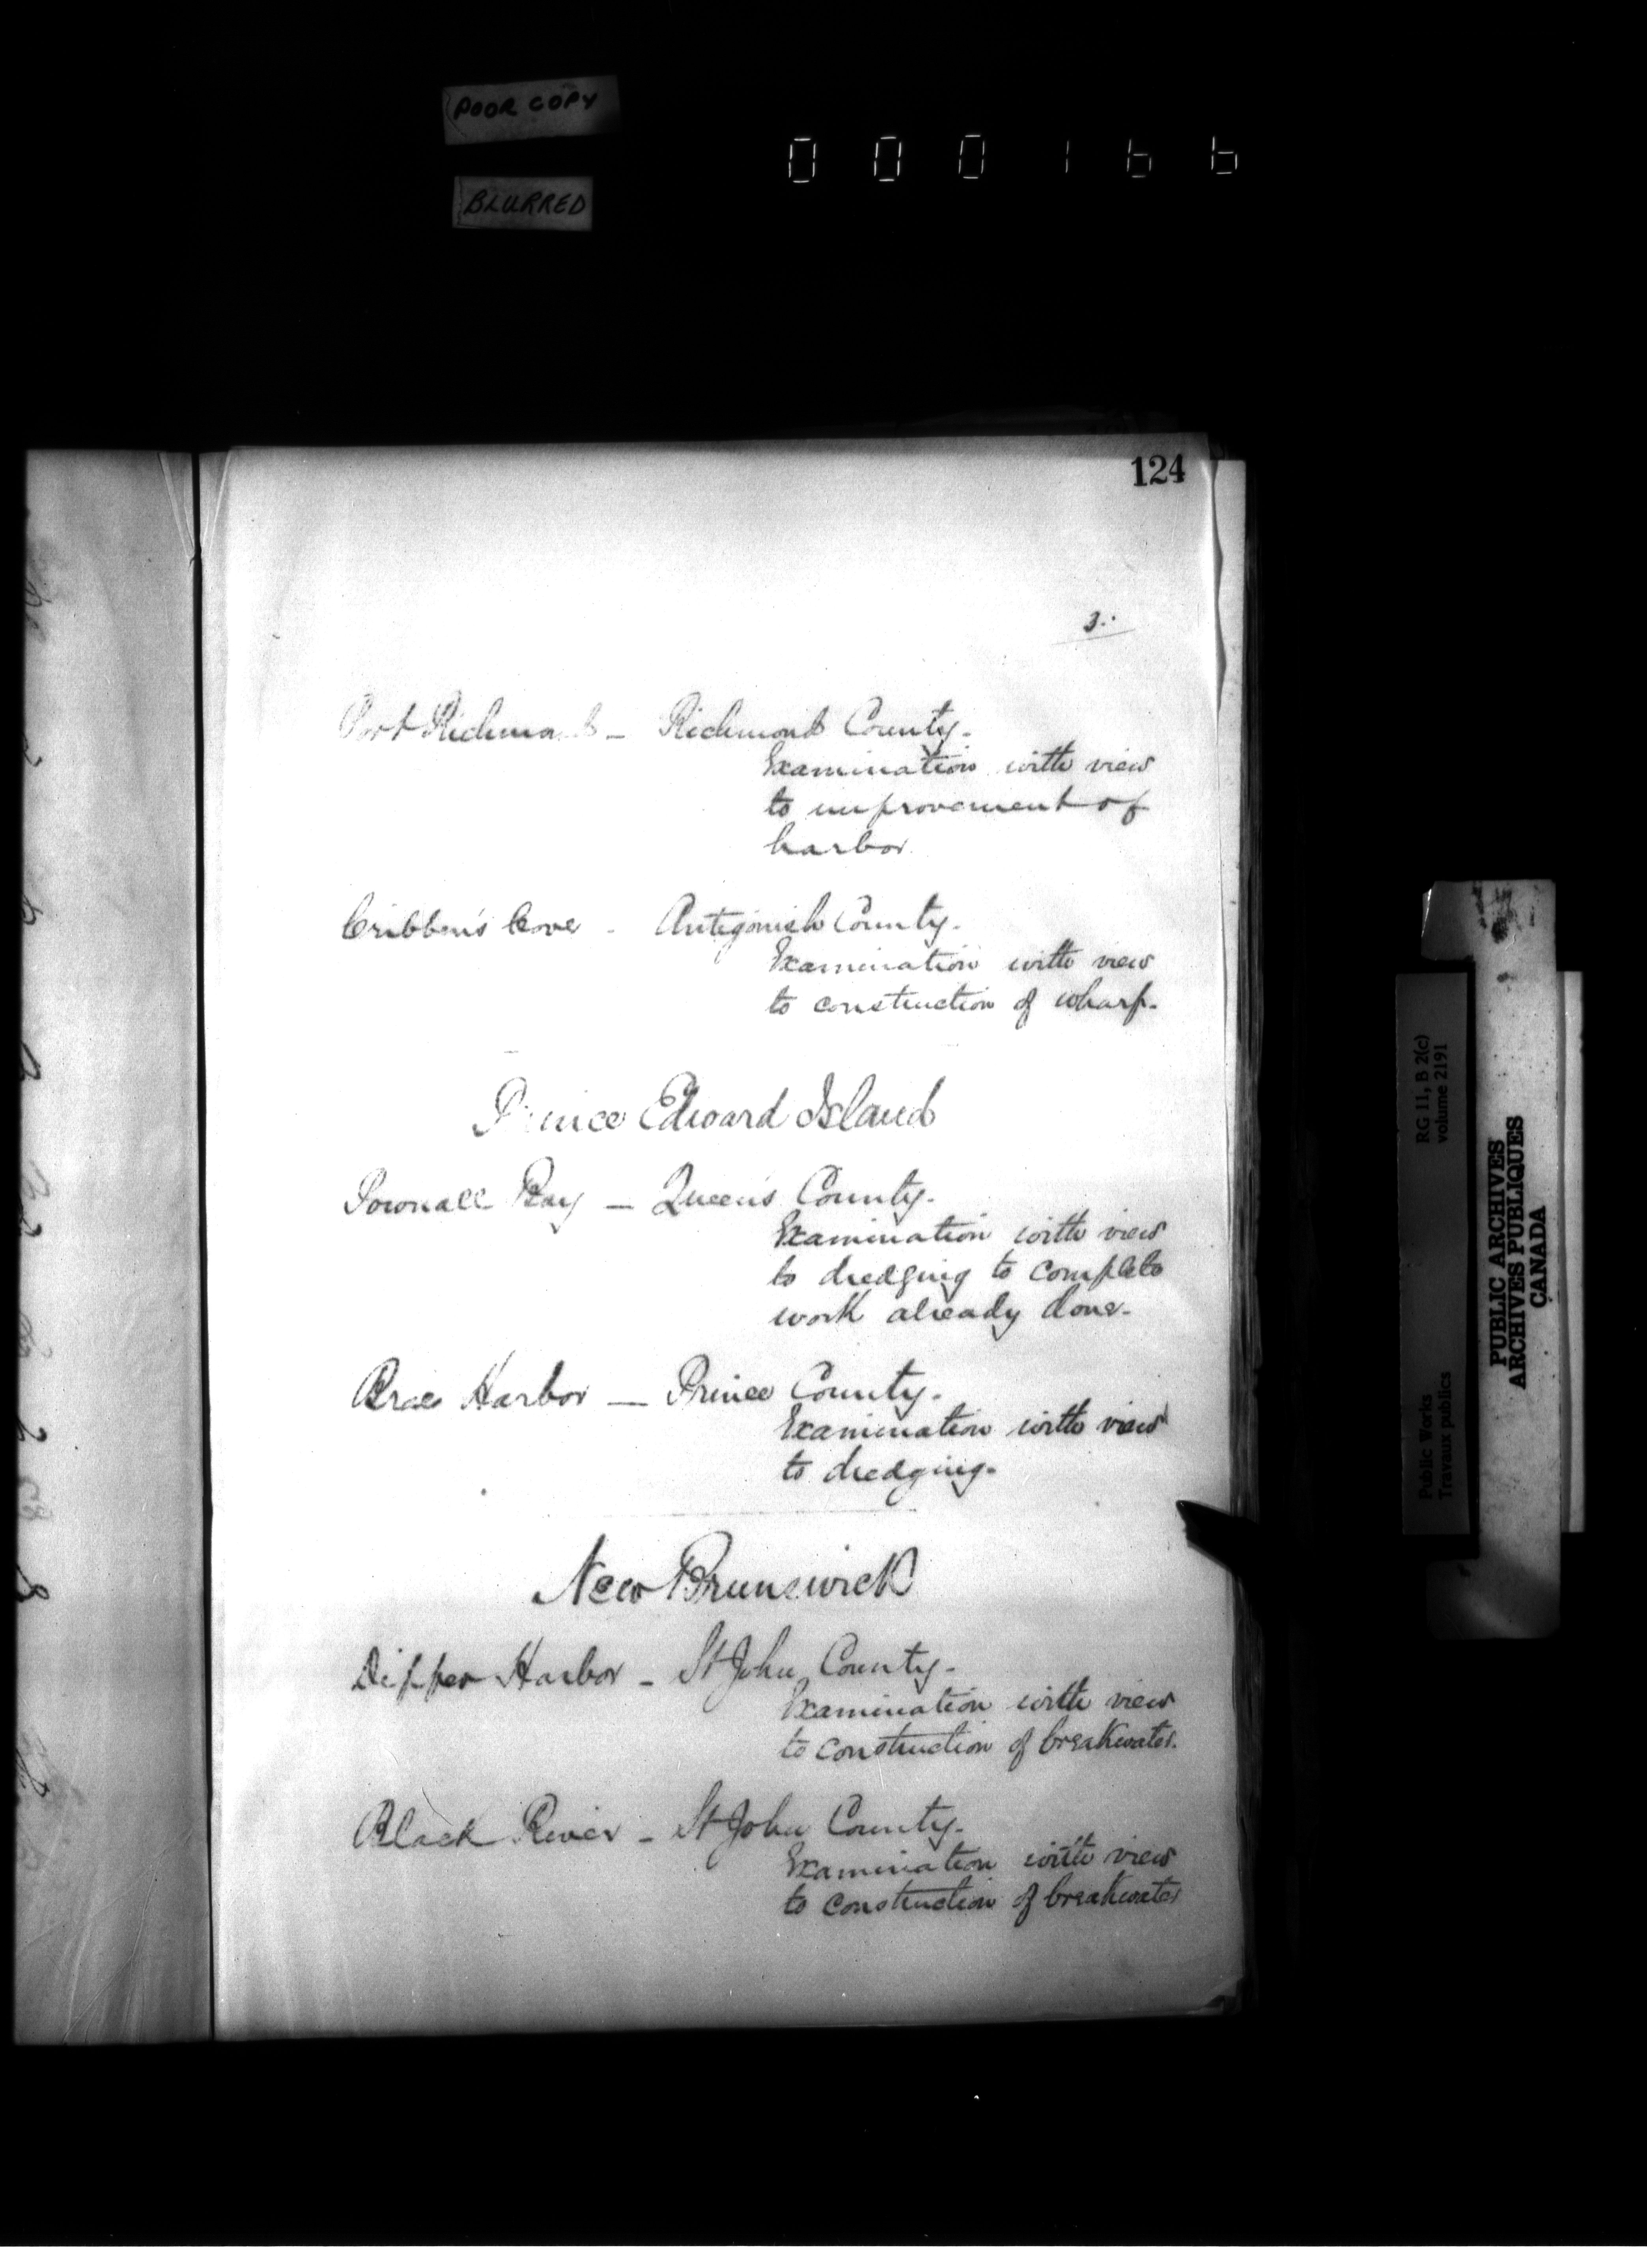 POOR COPY
BLURRED
000166
124
3.
Port Richmond - Richmond County.
Examination with view
to improvement of
harbor.
Cribben's Cove - Antigonish County.
Examination with view
to construction of wharf.
Prince Edward Island
Pownall Bay - Queen's County.
Examination with view
to dredging to complete
work already done.
Brae Harbor - Prince County.
Examination with view
to dredging.
New Brunswick
Dipper Harbor - St John County.
Examination with view
to construction of breakwater.
Black River - St John County.
Examination with view
to construction of breakwater
RG 11, B 2(c)
volume 2191
Public Works
Travaux publics
PUBLIC ARCHIVES
ARCHIVES PUBLIQUES
CANADA